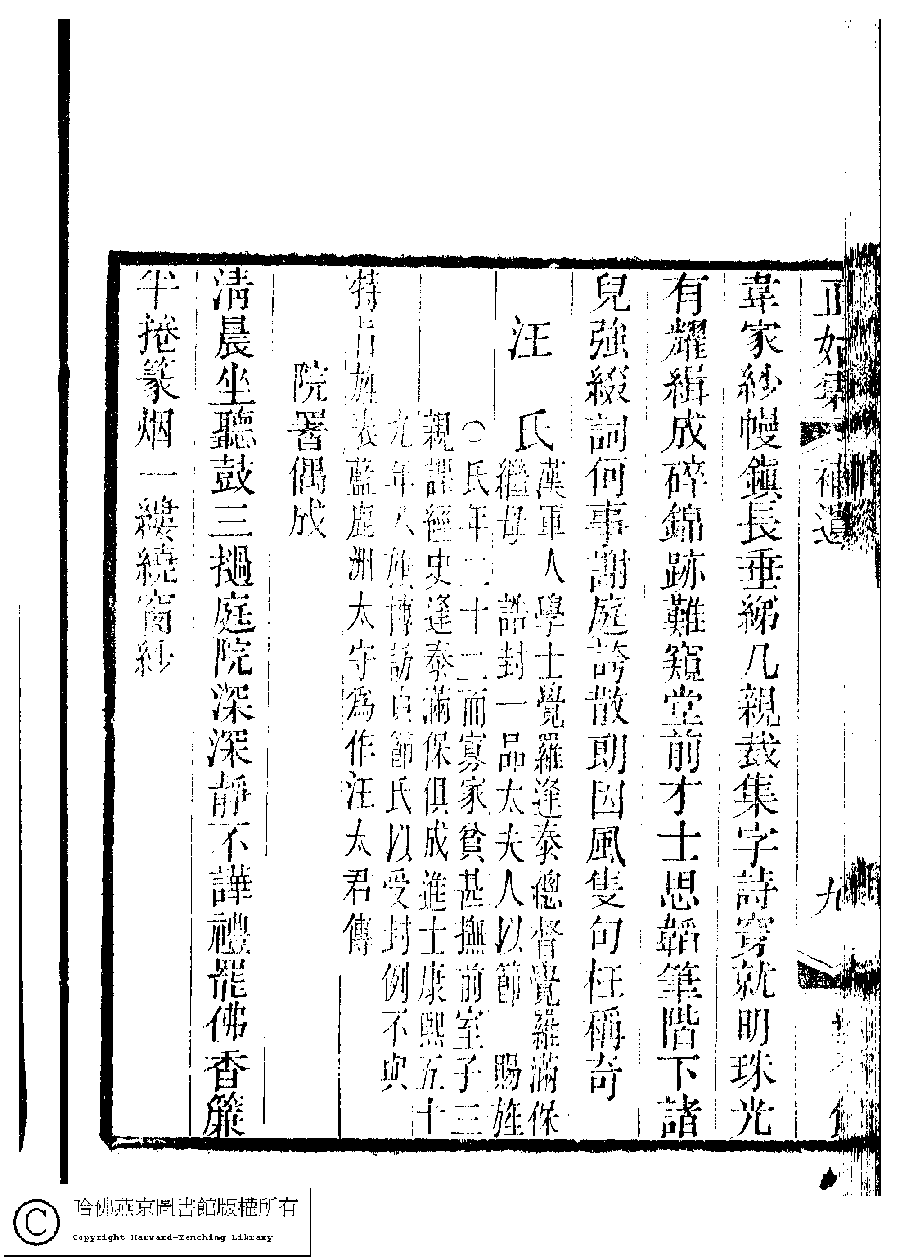 正始集 補遺 九
韋家紗幔鎮長垂綈几親裁集字詩穿就明珠光
有耀緝成碎錦跡難窺堂前才士思韜筆階下諸
兒強綴詞何事謝庭誇散朗因風隻句枉稱奇
汪氏
漢軍人學士覺羅逢泰總督覺羅滿保
繼母 誥封一品太夫人以節 賜旌
○氏年二十二而寡家貧甚撫前室子三
親課經史逢泰滿保俱成進士康熙五十
九年八旗博訪貞節氏以受封例不與
特旨旌表藍鹿洲太守為作汪太君傳
院署偶成
清晨坐聽鼓三撾庭院深深靜不譁禮罷佛香簾
半捲篆烟一縷繞窗紗
哈佛燕京圖書館版權所有
Copyright Harvard-Yenching Library